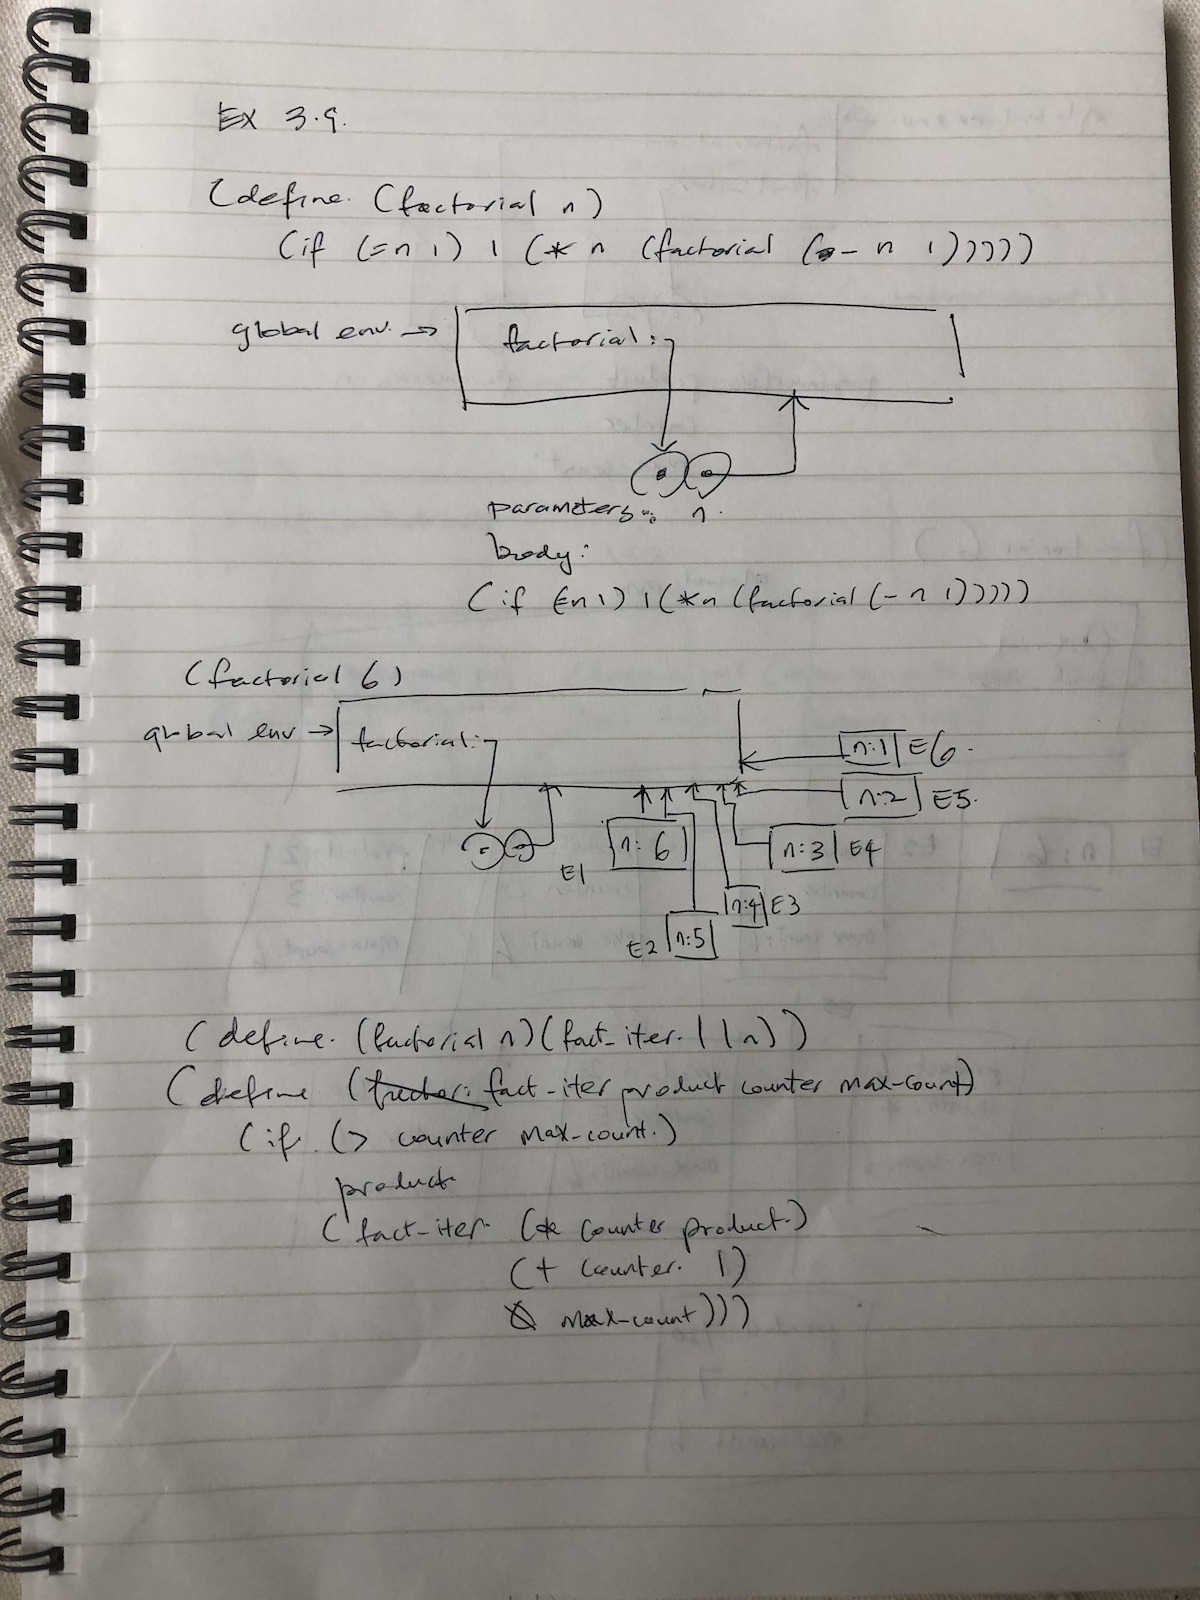 Ex 3.9.
(define (factorial n)
(if (= n 1) 1 (* n (factorial (- n 1)))))
global env. →
factorial:
parameters: n.
body:
(if (= n 1) 1 (* n (factorial (- n 1)))))
(factorial 6)
global env →
factorial:
n:1 E6.
n:2 E5.
n:6 E1
n:3 E4
n:4 E3
E2 n:5
(define (factorial n) (fact-iter 1 1 n))
(define (fact-iter product counter max-count)
(if (> counter max-count)
product
(fact-iter (* counter product)
(+ counter 1)
max-count)))